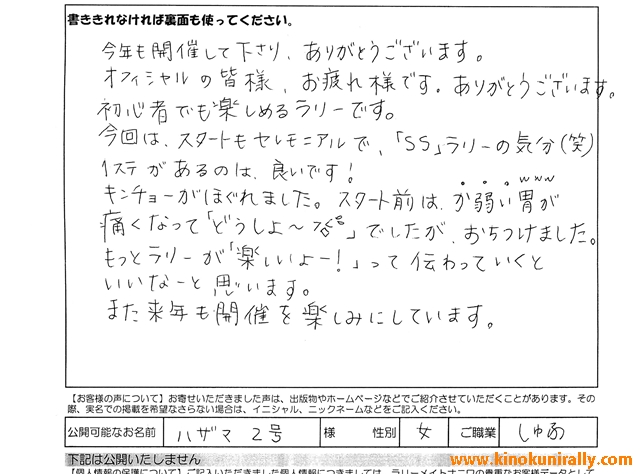 書ききれなければ裏面も使ってください。
今年も開催して下さり、ありがとうございます。
オフィシャルの皆様、お疲れ様です。ありがとうございます。
初心者でも楽しめるラリーです。
今回は、スタートもセレモニアルで、「SS」ラリーの気分(笑)
1ステがあるのは、良いです!
キンチョーがほぐれました。スタート前は、か弱い胃が
www
痛くなって「どうしよ〜」でしたが、おちつけました。
もっとラリーが「楽しいよー!」って伝わっていくと
いいなーと思います。
また来年も開催を楽しみにしています。
【お客様の声について】お寄せいただきました声は、出版物やホームページなどでご紹介させていただくことがあります。その
際、実名での掲載を希望なさらない場合は、イニシャル、ニックネームなどをご記入ください。
公開可能なお名前 ハザマ 2号 様 性別 女 ご職業 しゅふ
下記は公開いたしません
www.kinokunirally.com